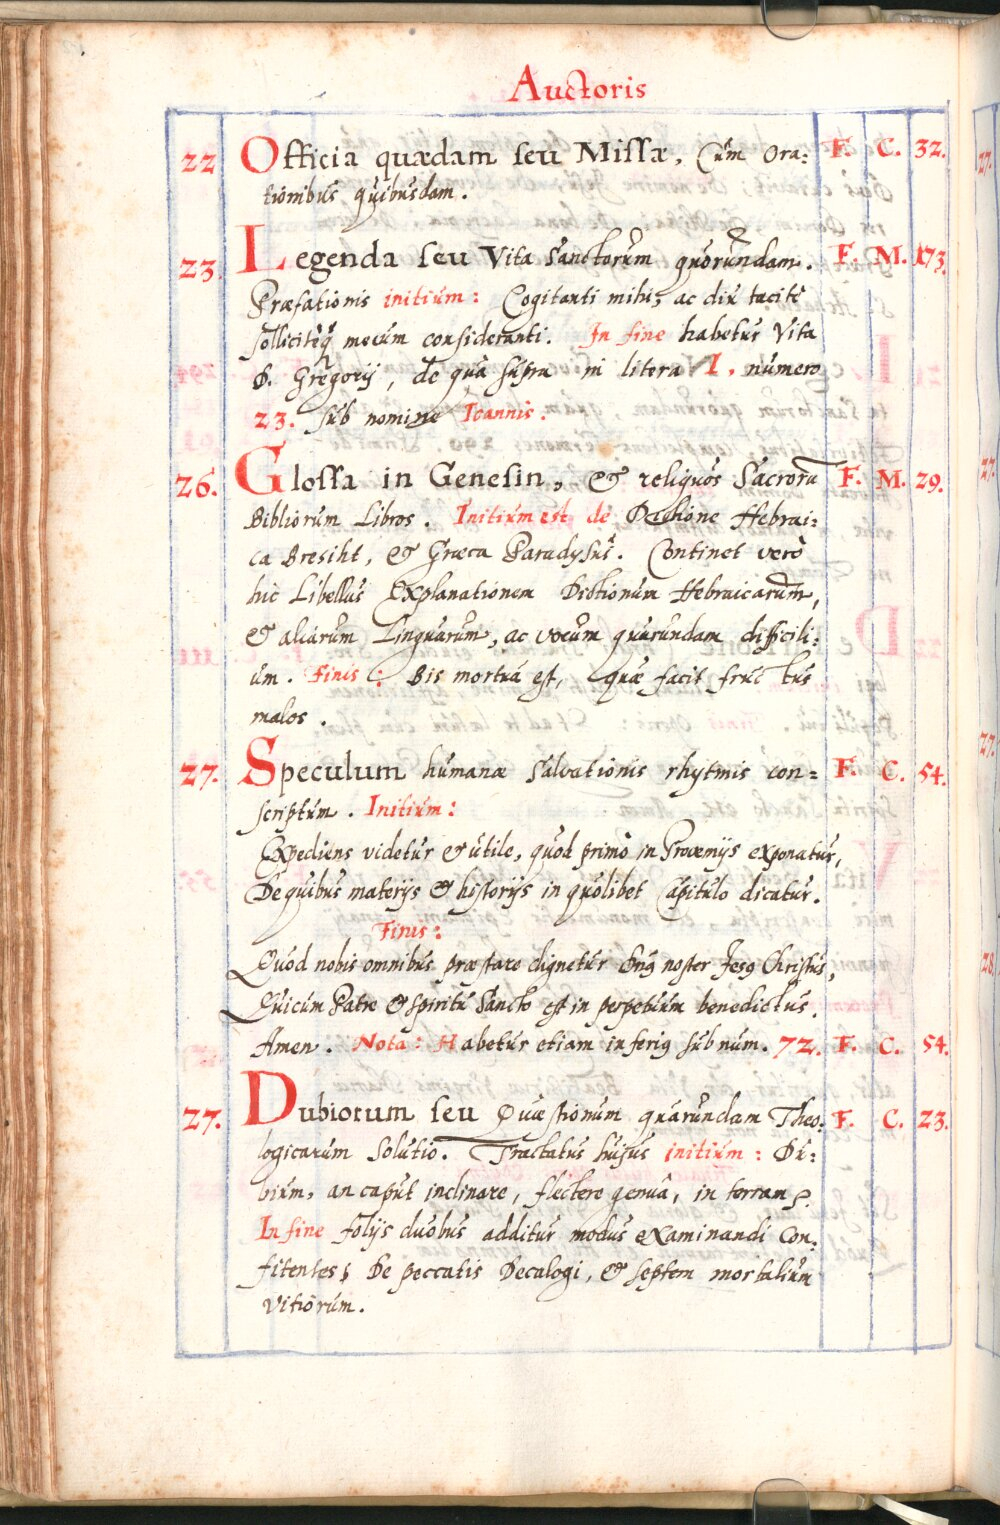 Auctoris
22 Officia quædam seu Missæ, Cùm Ora= F. C. 32.
tionibus quibusdam.
23. Legenda seu Vita Sanctorum quorundam. F. M. 173.
Præfationis initium: Cogitanti mihi, ac diu tacitè
sollicitèq́ mecum consideranti. In fine habetur Vita
D. Gregorij, de quâ supra in litera I. numero
23. sub nomine Ioannis.
26. Glossa in Genesin, & reliquos Sacrorū F. M. 29.
Bibliorum Libros. Initium est de Dictione Hebrai=
ca Bresiht, & Græca Paradysus. Continet verò
hic Libellus Explanationem Dictionum Hebraicarum,
& aliarum Linguarum, ac vocum quarundam difficili=
um. Finis: Bis mortua est, quæ facit fructus
malos.
27. Speculum humanæ salvationis rhytmis con= F. C. 54.
scriptum. Initium:
Expediens videtur & utile, quòd primò in Proœmijs exponatur,
De quibus materijs & historijs in quolibet Capitulo dicatur.
Finis:
Quod nobis omnibus præstare dignetur Dn̄s noster Jesus Christus,
Qui cum Patre & Spiritu Sancto est in perpetuum benedictus.
Amen. Nota: Habetur etiam inferiꝰ sub num. 72. F. C. 54.
27. Dubiorum seu Quæstionum quarundam Theo- F. C. 23.
logicarum Solutio. Tractatus hujus initium: Du=
bium, an caput inclinare, flectere genua, in terram,
In fine folijs duobus additur modus examinandi con=
fitentes; De peccatis Decalogi, & septem mortalium
vitiorum.